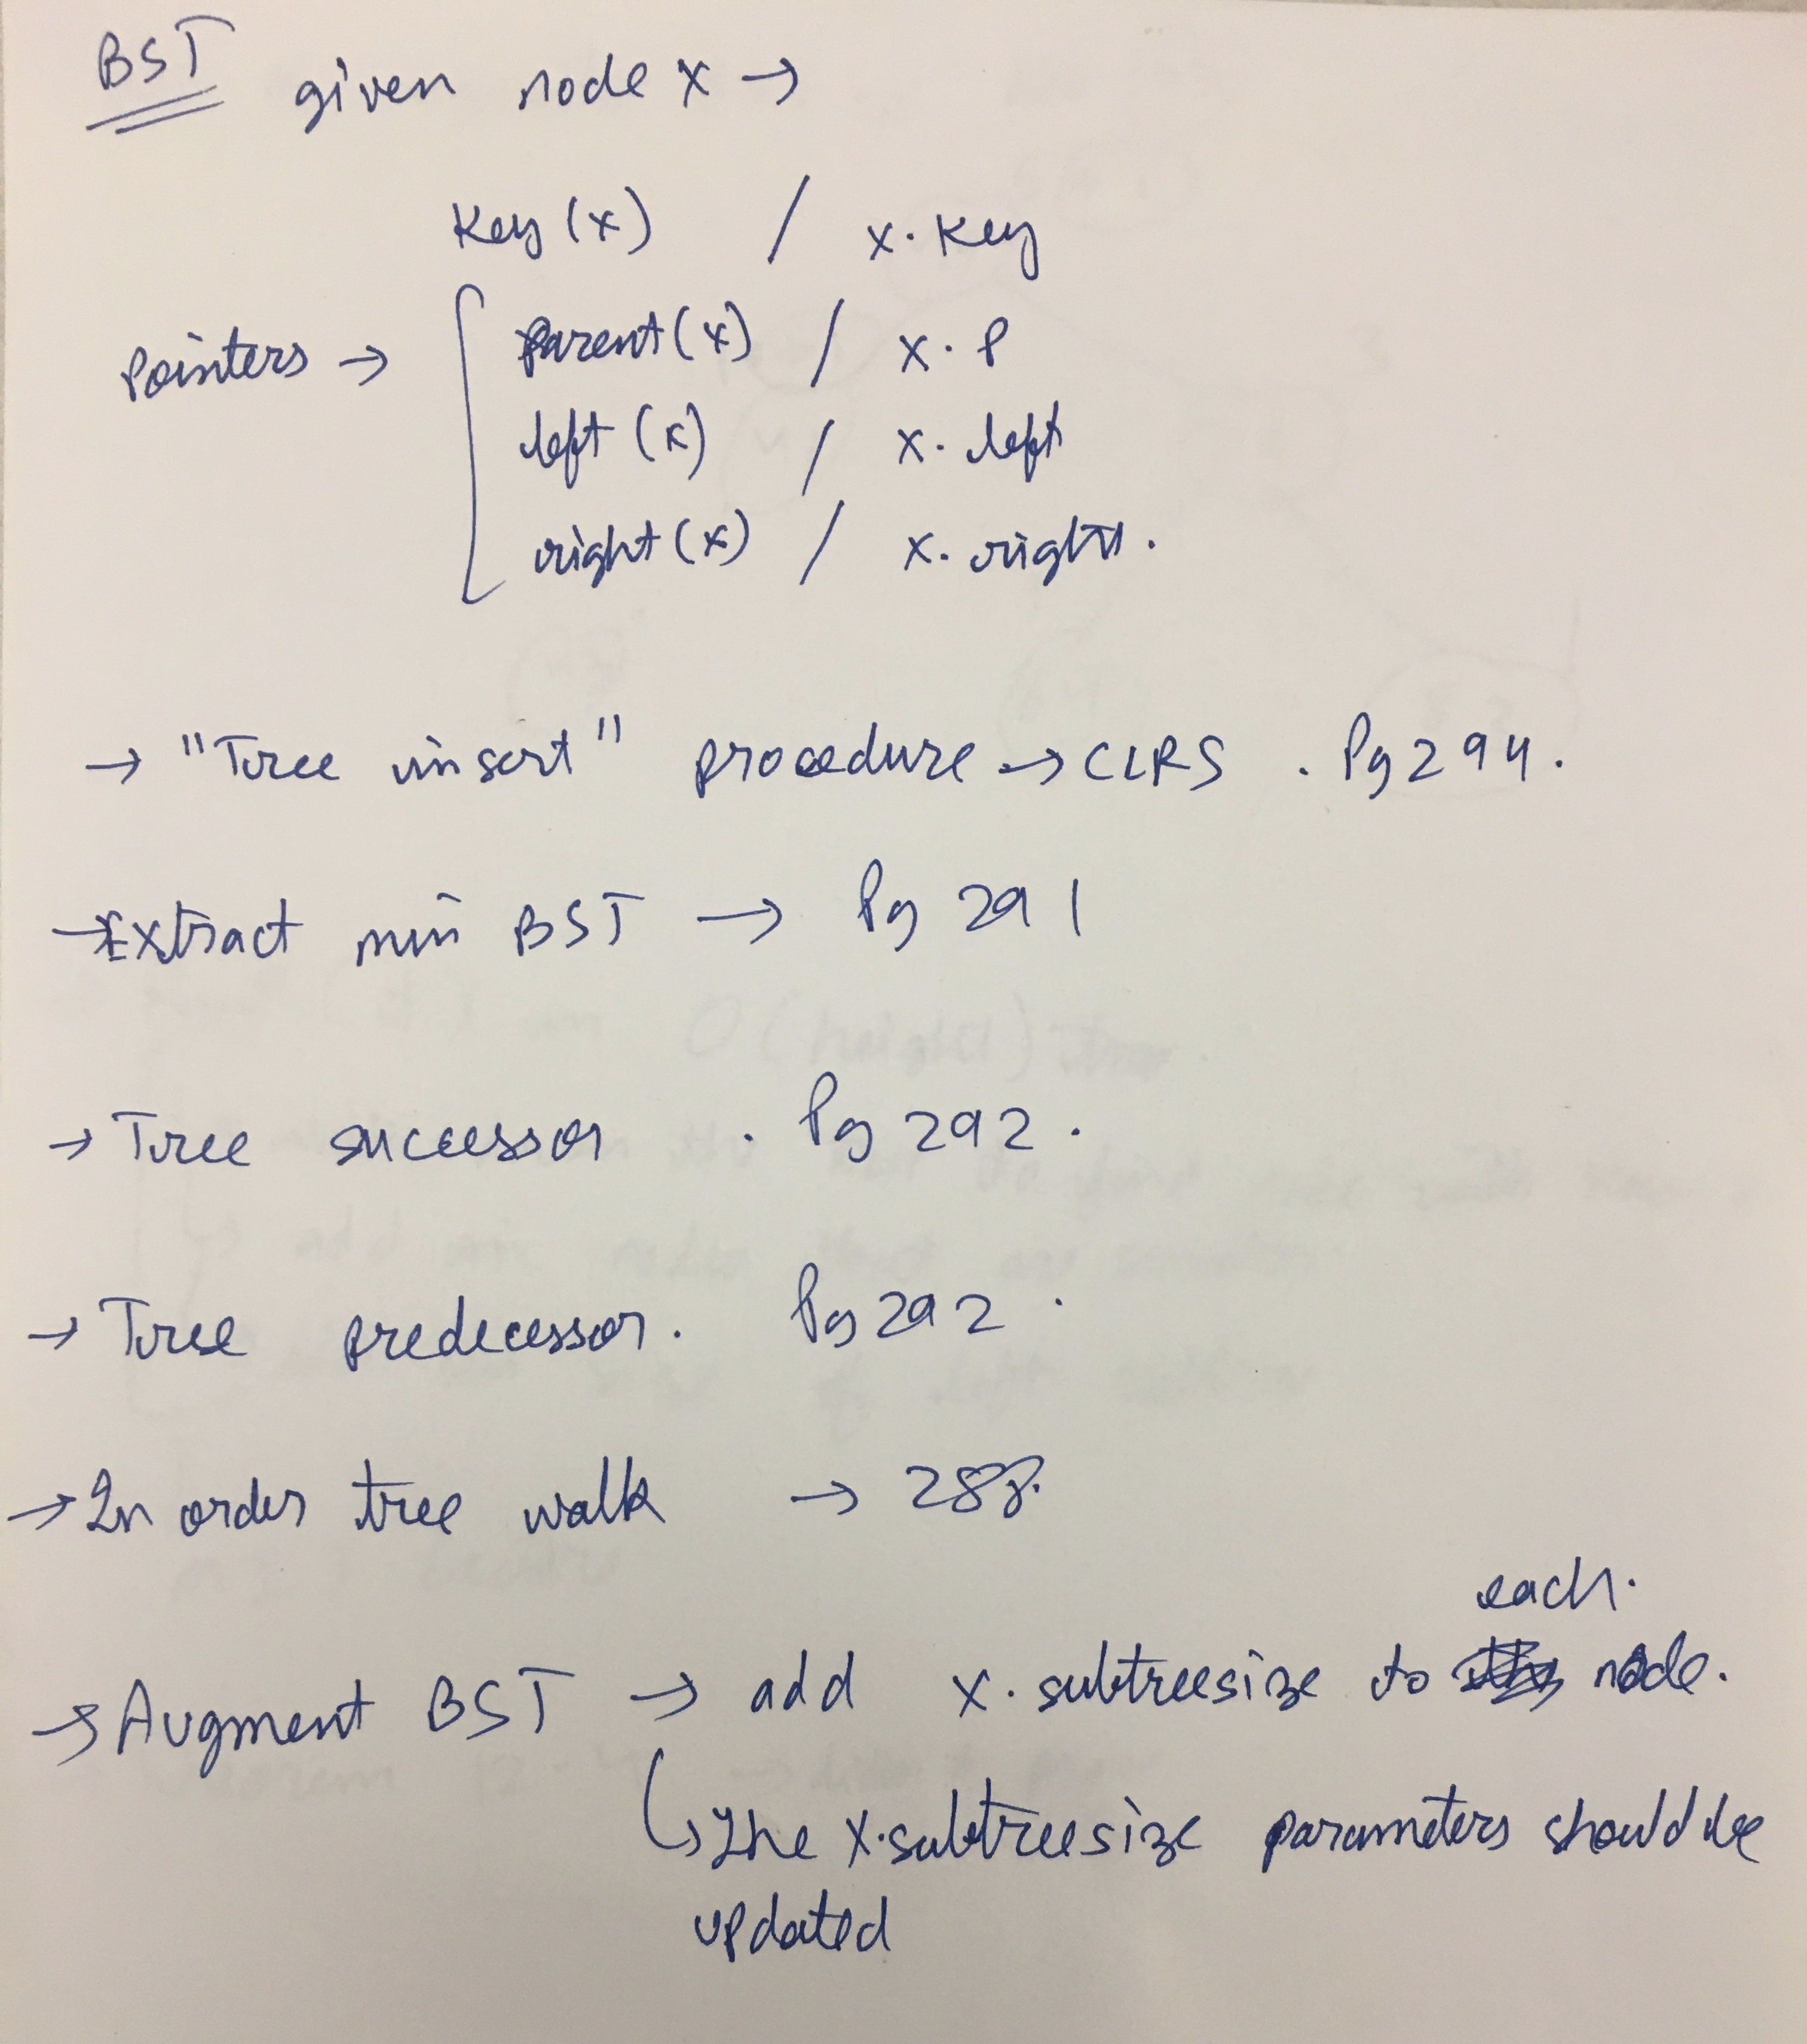 BST given node x →
Key (x) / x. Key
Pointers → parent (x) / x. P
left (x) / x. left
right (x) / x. right.
→ "Tree insert" procedure → CLRS . Pg 294.
→ Extract min BST → Pg 291
→ Tree successor . Pg 292.
→ Tree predecessor. Pg 292.
→ In order tree walk → 288.
each.
→ Augment BST → add x. subtreesize to node.
↳ The x.subtreesize parameters should be
updated